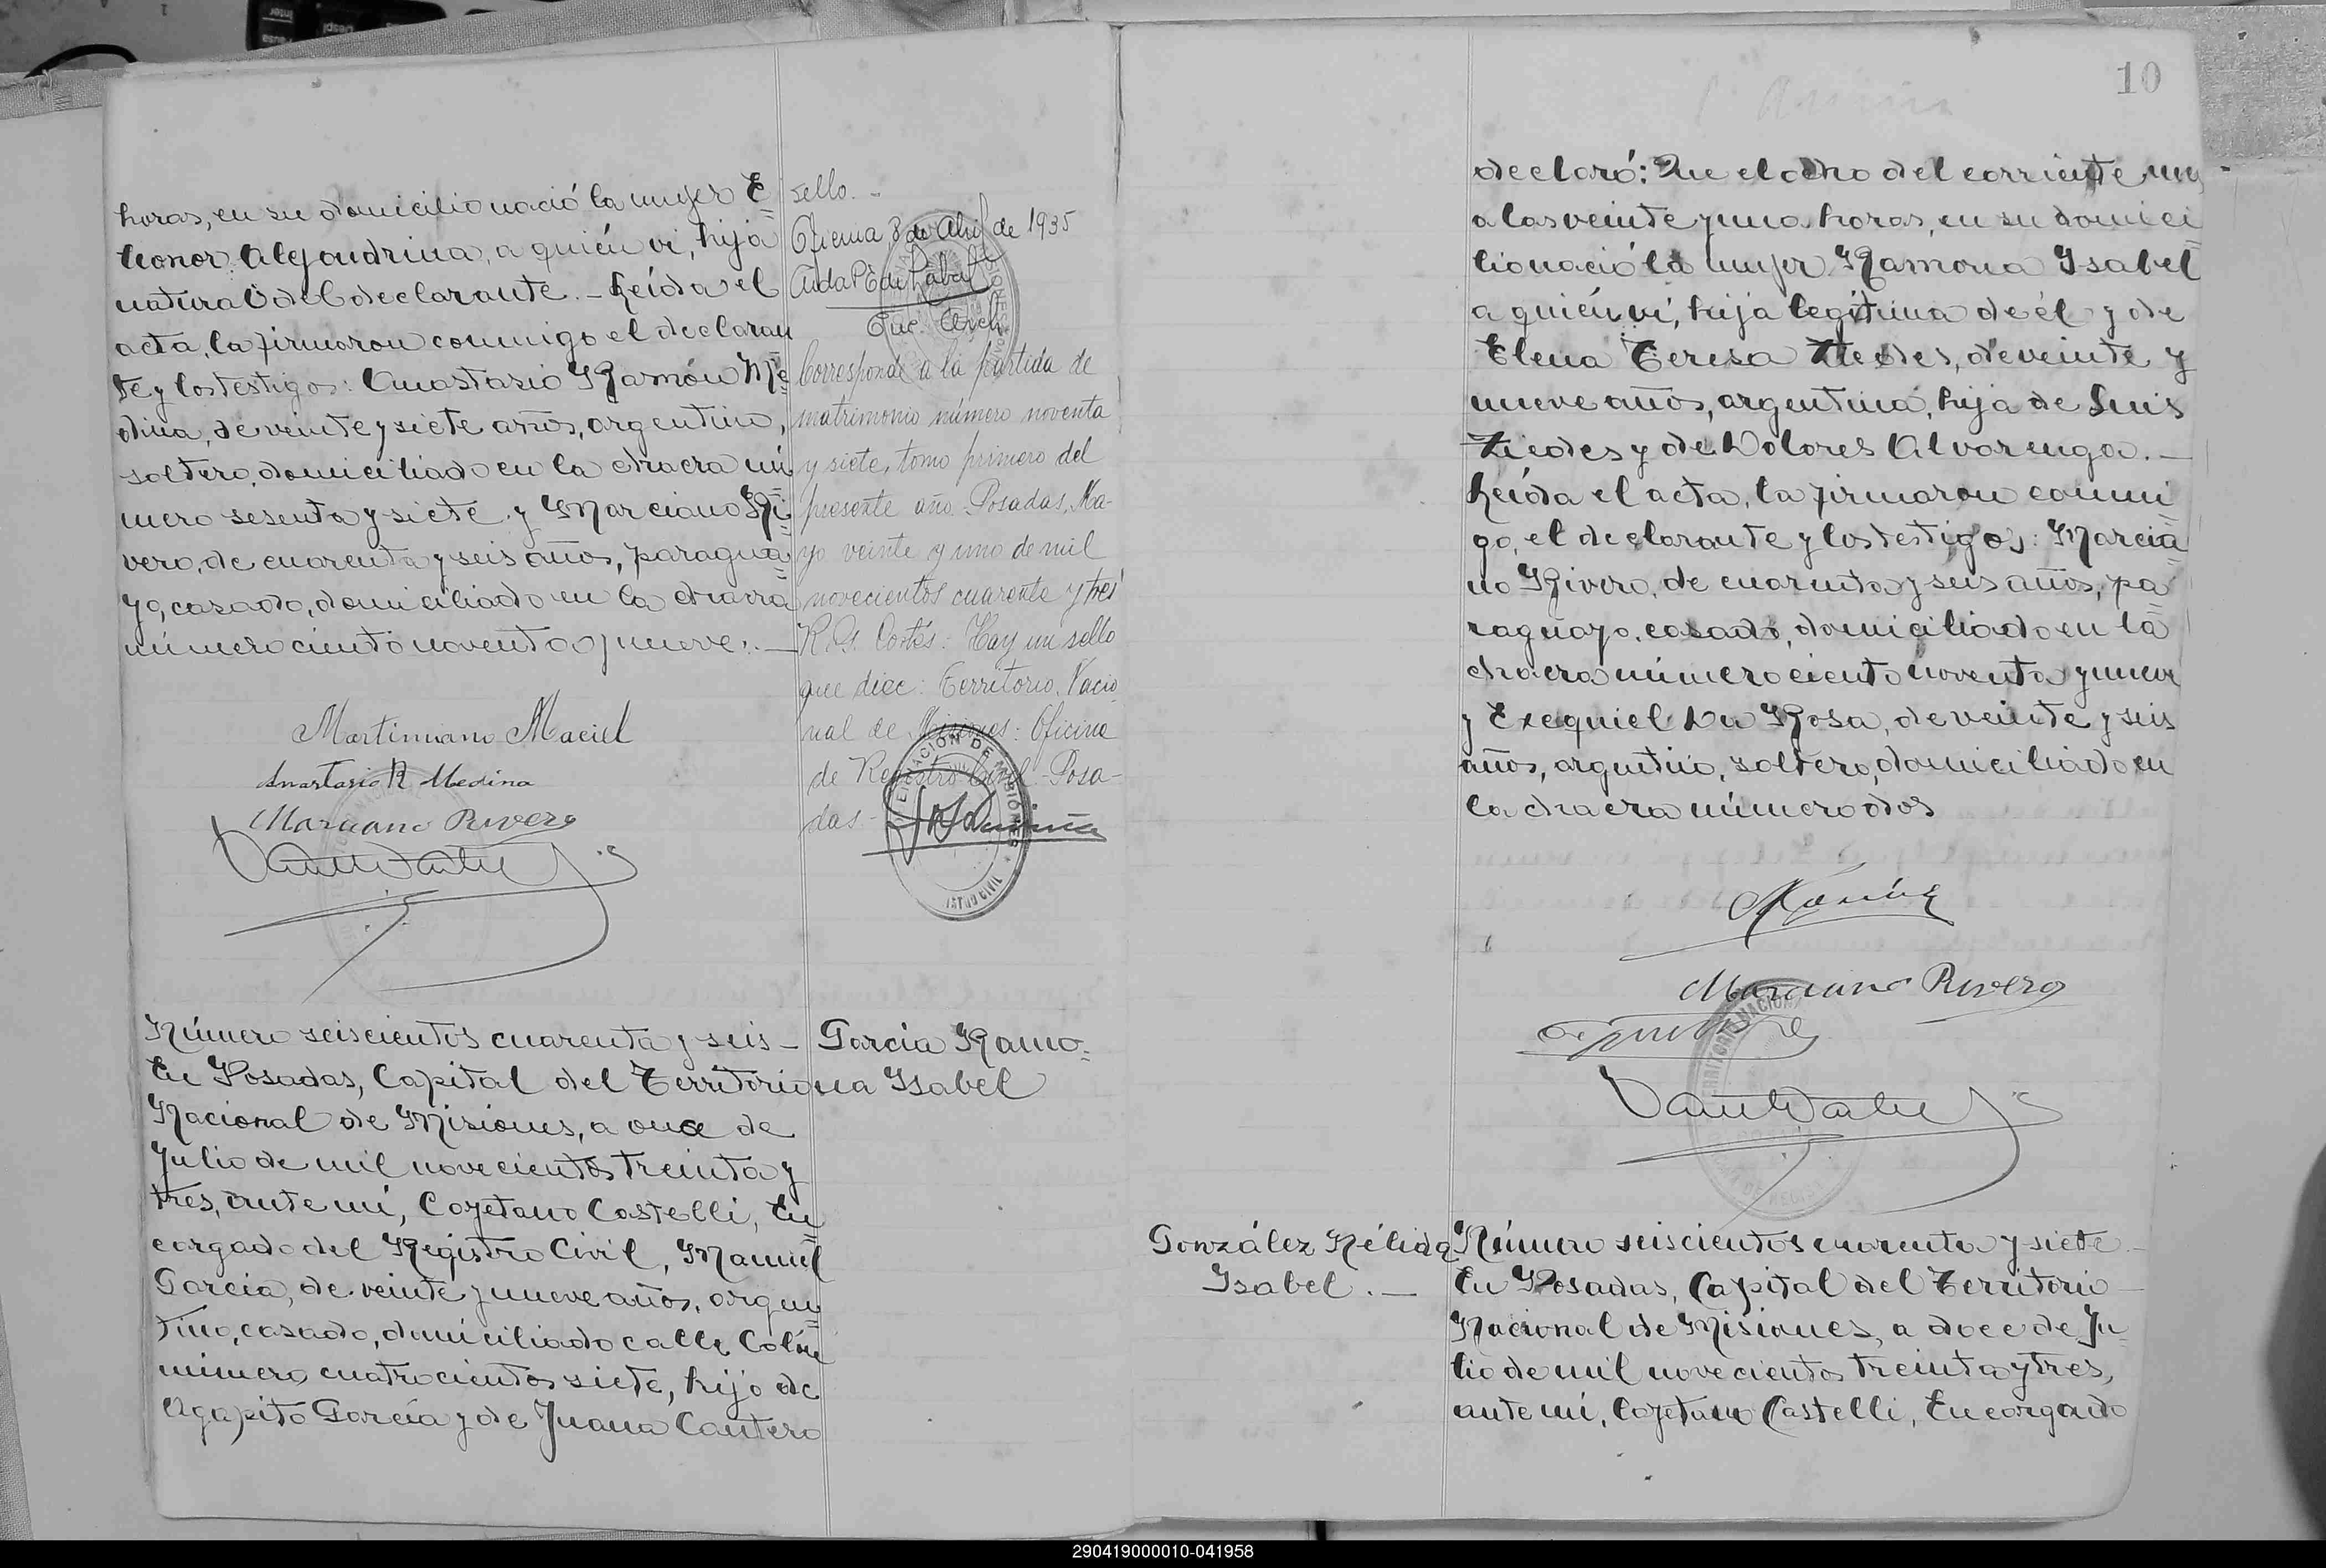 horas, en su domicilio nació la mujer E=
leonor Alejandrina, a quién vi, hija
natural del declarante._ Leída el
acta, la firmaron conmigo el declaran=
te y los testigos: Anastasio Ramón Me=
dina, de veinte y siete años, argentino,
soltero, domiciliado en la chacra nú=
mero sesenta y siete y Marciano Ri=
vero, de cuarenta y seis años, paragua=
yo, casado, domiciliado en la chacra
número ciento noventa y nueve._
Martimiano Maciel
Anastasio R Medina
Marciano Rivero
sello._
Oficina 8 de Abril de 1935
Aida P de Labat
Enc. Arch.
Corresponde a la partida de
matrimonio número noventa
y siete, tomo primero del
presente año. Posadas, Ma-
yo veinte y uno de mil
novecientos cuarenta y tres
R.G. Cortés: Hay un sello
que dice: Territorio Nacio
nal de Misiones: Oficina
de Registro Civil - Posa-
das-
Número seiscientos cuarenta y seis _
En Posadas, Capital del Territorio
Nacional de Misiones, a once de
Julio de mil novecientos treinta y
tres, ante mí, Cayetano Castelli, En=
cargado del Registro Civil, Manuel
García, de veinte y nueve años, argen=
tino, casado, domiciliado calle Colón
número cuatrocientos siete, hijo de
Agapito García y de Juana Cantero
García Ramo=
na Isabel
10
declaró: Que el ocho del corriente mes
a las veinte y una horas, en su domici=
lio nació la mujer Ramona Isabel
a quién vi, hija legítima de él y de
Elena Teresa de veinte y
nueve años, argentina, hija de Luis
y de Dolores Alvarenga._
Leída el acta, la firmaron conmi
go, el declarante y los testigos: Marcia=
no Rivero, de cuarenta y seis años, pa=
raguayo, casado, domiciliado en la
chacra número ciento noventa y nueve
y Exequiel Da Rosa, de veinte y seis
años, argentino, soltero, domiciliado en
la chacra número dos
Marciano Rivero
González Nélida
Isabel._
Número seiscientos cuarenta y siete_
En Posadas, Capital del Territorio
Nacional de Misiones, a doce de Ju=
lio de mil novecientos treinta y tres,
ante mí, Cayetano Castelli, Encargado
290419000010-041958